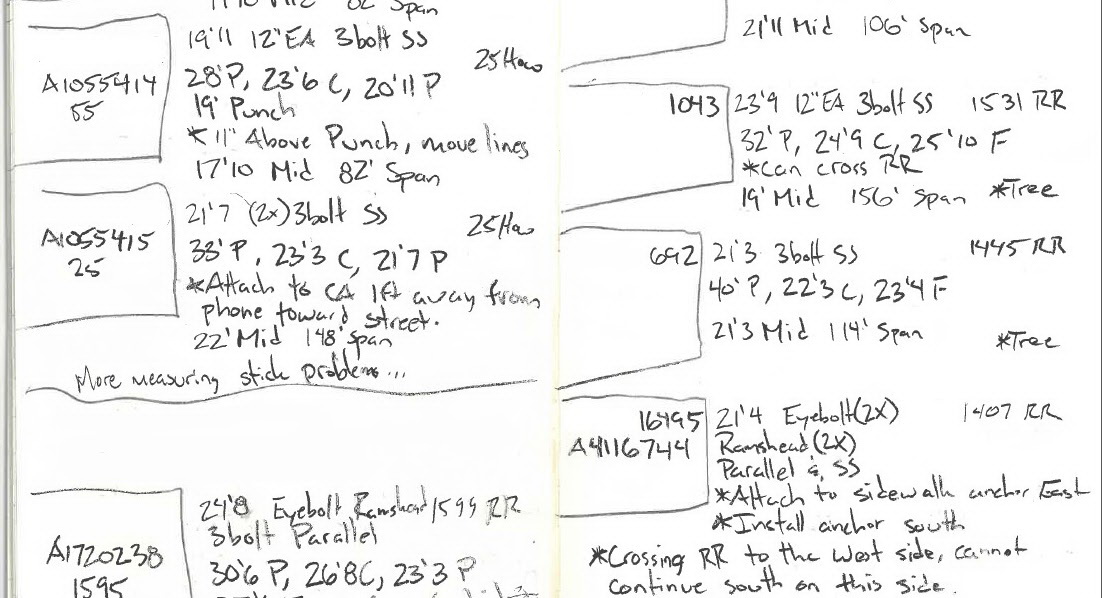 82' Span
A1055414
55
19'11 12"EA 3bolt SS
25 Haw
28'P, 23'6 C, 20'11 P
19' Punch
*11" Above Punch, move lines
17'10 Mid 82' Span
A1055415
25
21'7 (2x) 3bolt SS
25 Haw
33'P, 23'3 C, 21'7 P
*Attach to CA 1ft away from
phone toward street.
22' Mid 148' Span
More measuring stick problems...
A1720238
1595
24'8 Eyebolt Ramshead 1599 RR
3bolt Parallel
30'6 P, 26'8C, 23'3 P
21'11 Mid 106' Span
1043
23'9 12"EA 3bolt SS 1531 RR
32'P, 24'9 C, 25'10 F
*Can cross RR
19' Mid 156' Span *Tree
692
21'3 3bolt SS 1445 RR
40'P, 22'3 C, 23'4 F
21'3 Mid 114' Span
*Tree
16495
A4116744
21'4 Eyebolt(2X) 1407 RR
Ramshead(2X)
Parallel & SS
*Attach to sidewalk anchor East
*Install anchor south
*Crossing RR to the West side, cannot
continue south on this side.